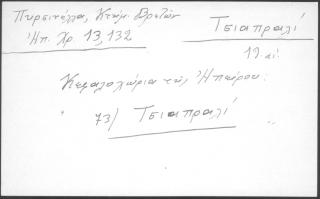 Πυρσινέλλα, Κτημ. Βρετών
Ἠπ. Χρ. 13, 132
Τσιαπραλί
19. αἰ.
Κεφαλοχώρια τῆς Ἠπείρου:
" 73) Τσιαπραλί "